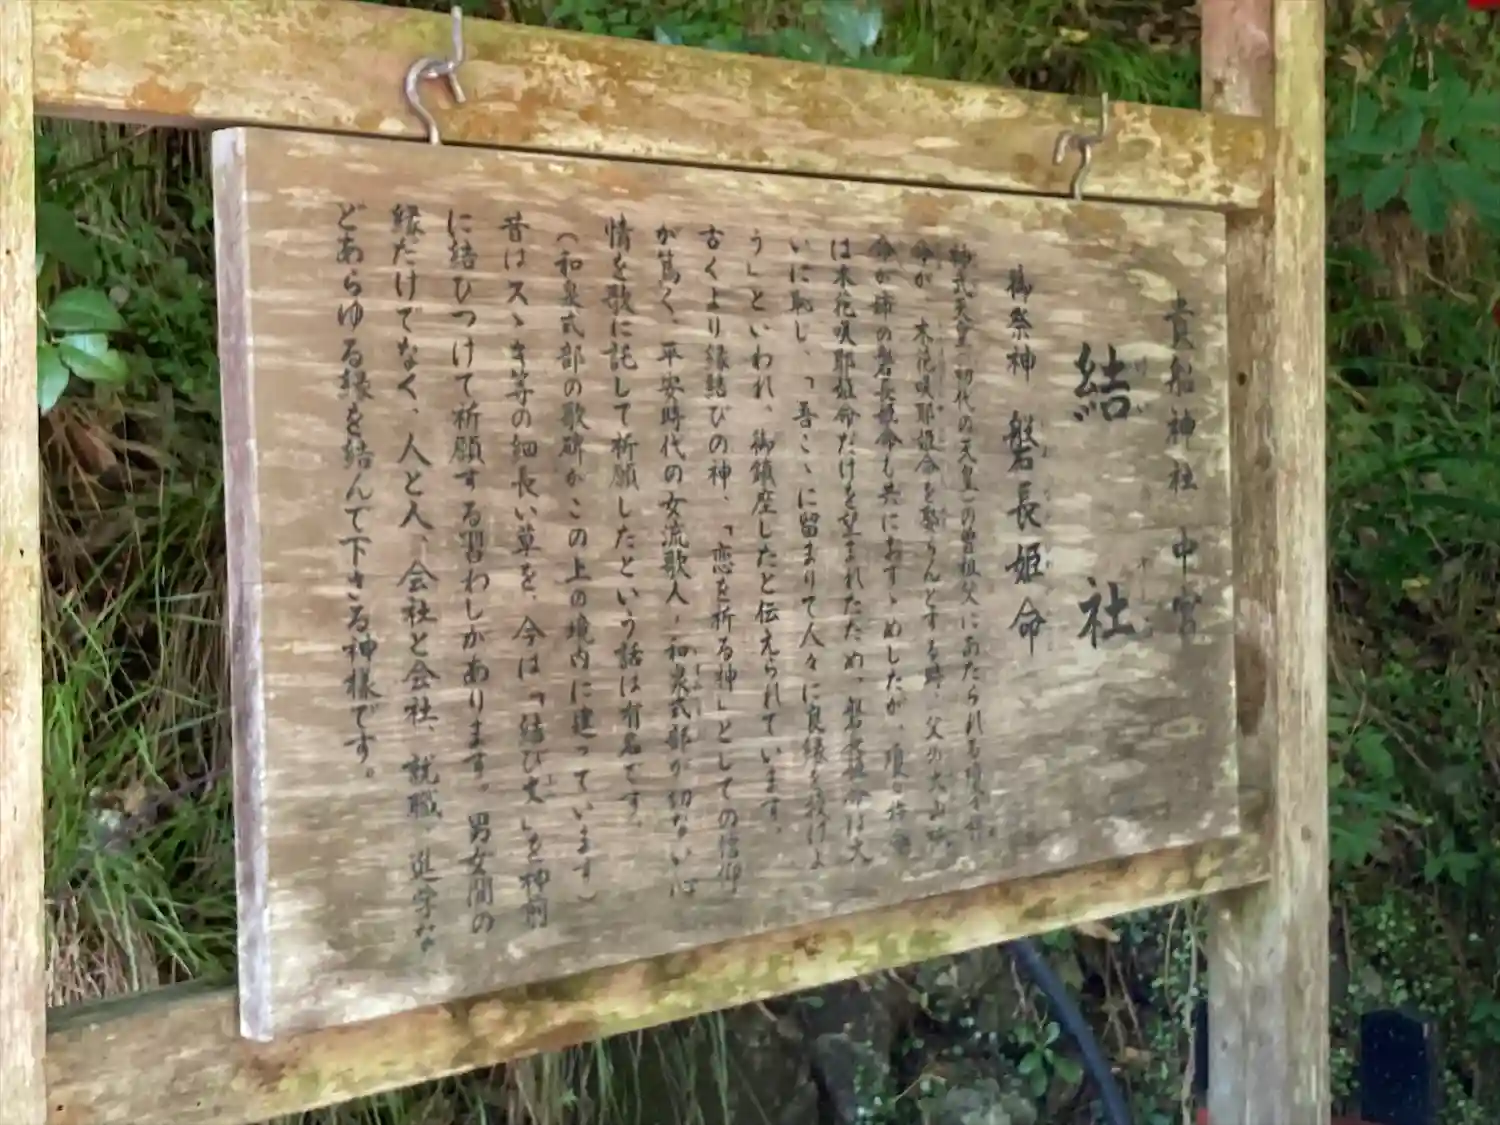 貴船神社 中宮
結社
御祭神 磐長姫命
神武天皇(初代の天皇)の曽祖父にあたられる
命が 木花咲耶姫命を娶らんとする時、父の大山祇
命が姉の磐長姫命も共におすゝめしたが、
は木花咲耶姫命だけを望まれたため、磐長姫命は大
いに恥じ、「吾こゝに留まりて人々に良縁を授けよ
う」といわれ、御鎮座したと伝えられています。
古くより縁結びの神、「恋を祈る神」としての信仰
が篤く、平安時代の女流歌人・和泉式部が切ない心
情を歌に託して祈願したという話は有名です。
(和泉式部の歌碑がこの上の境内に建っています)
昔はスゝキ等の細長い草を、今は「結び文」を神前
に結びつけて祈願する習わしがあります。男女間の
縁だけでなく、人と人、会社と会社、就職、進学な
どあらゆる縁を結んで下さる神様です。